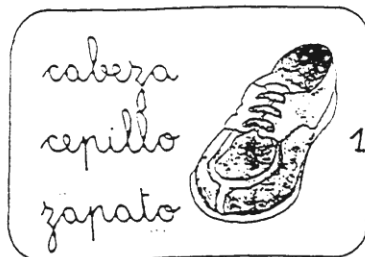 cabeza
cepillo
zapato
1